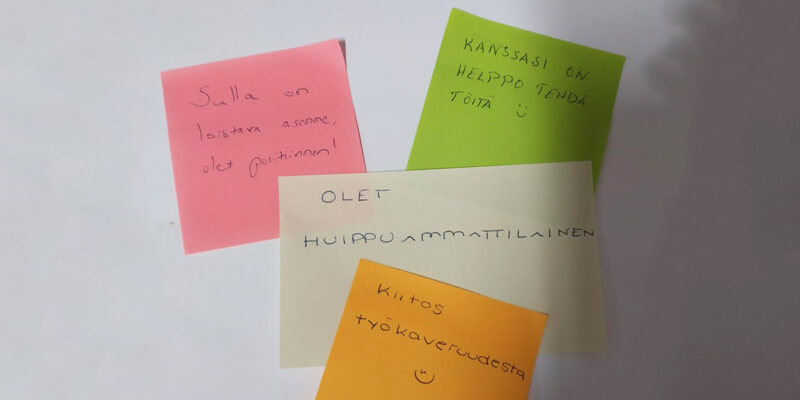 Sulla on
loistava asenne,
olet positiivinen!
KANSSASI ON
HELPPO TEHDÄ
TÖITÄ
OLET
HUIPPUAMMATTILAINEN
Kiitos
työkaveruudesta